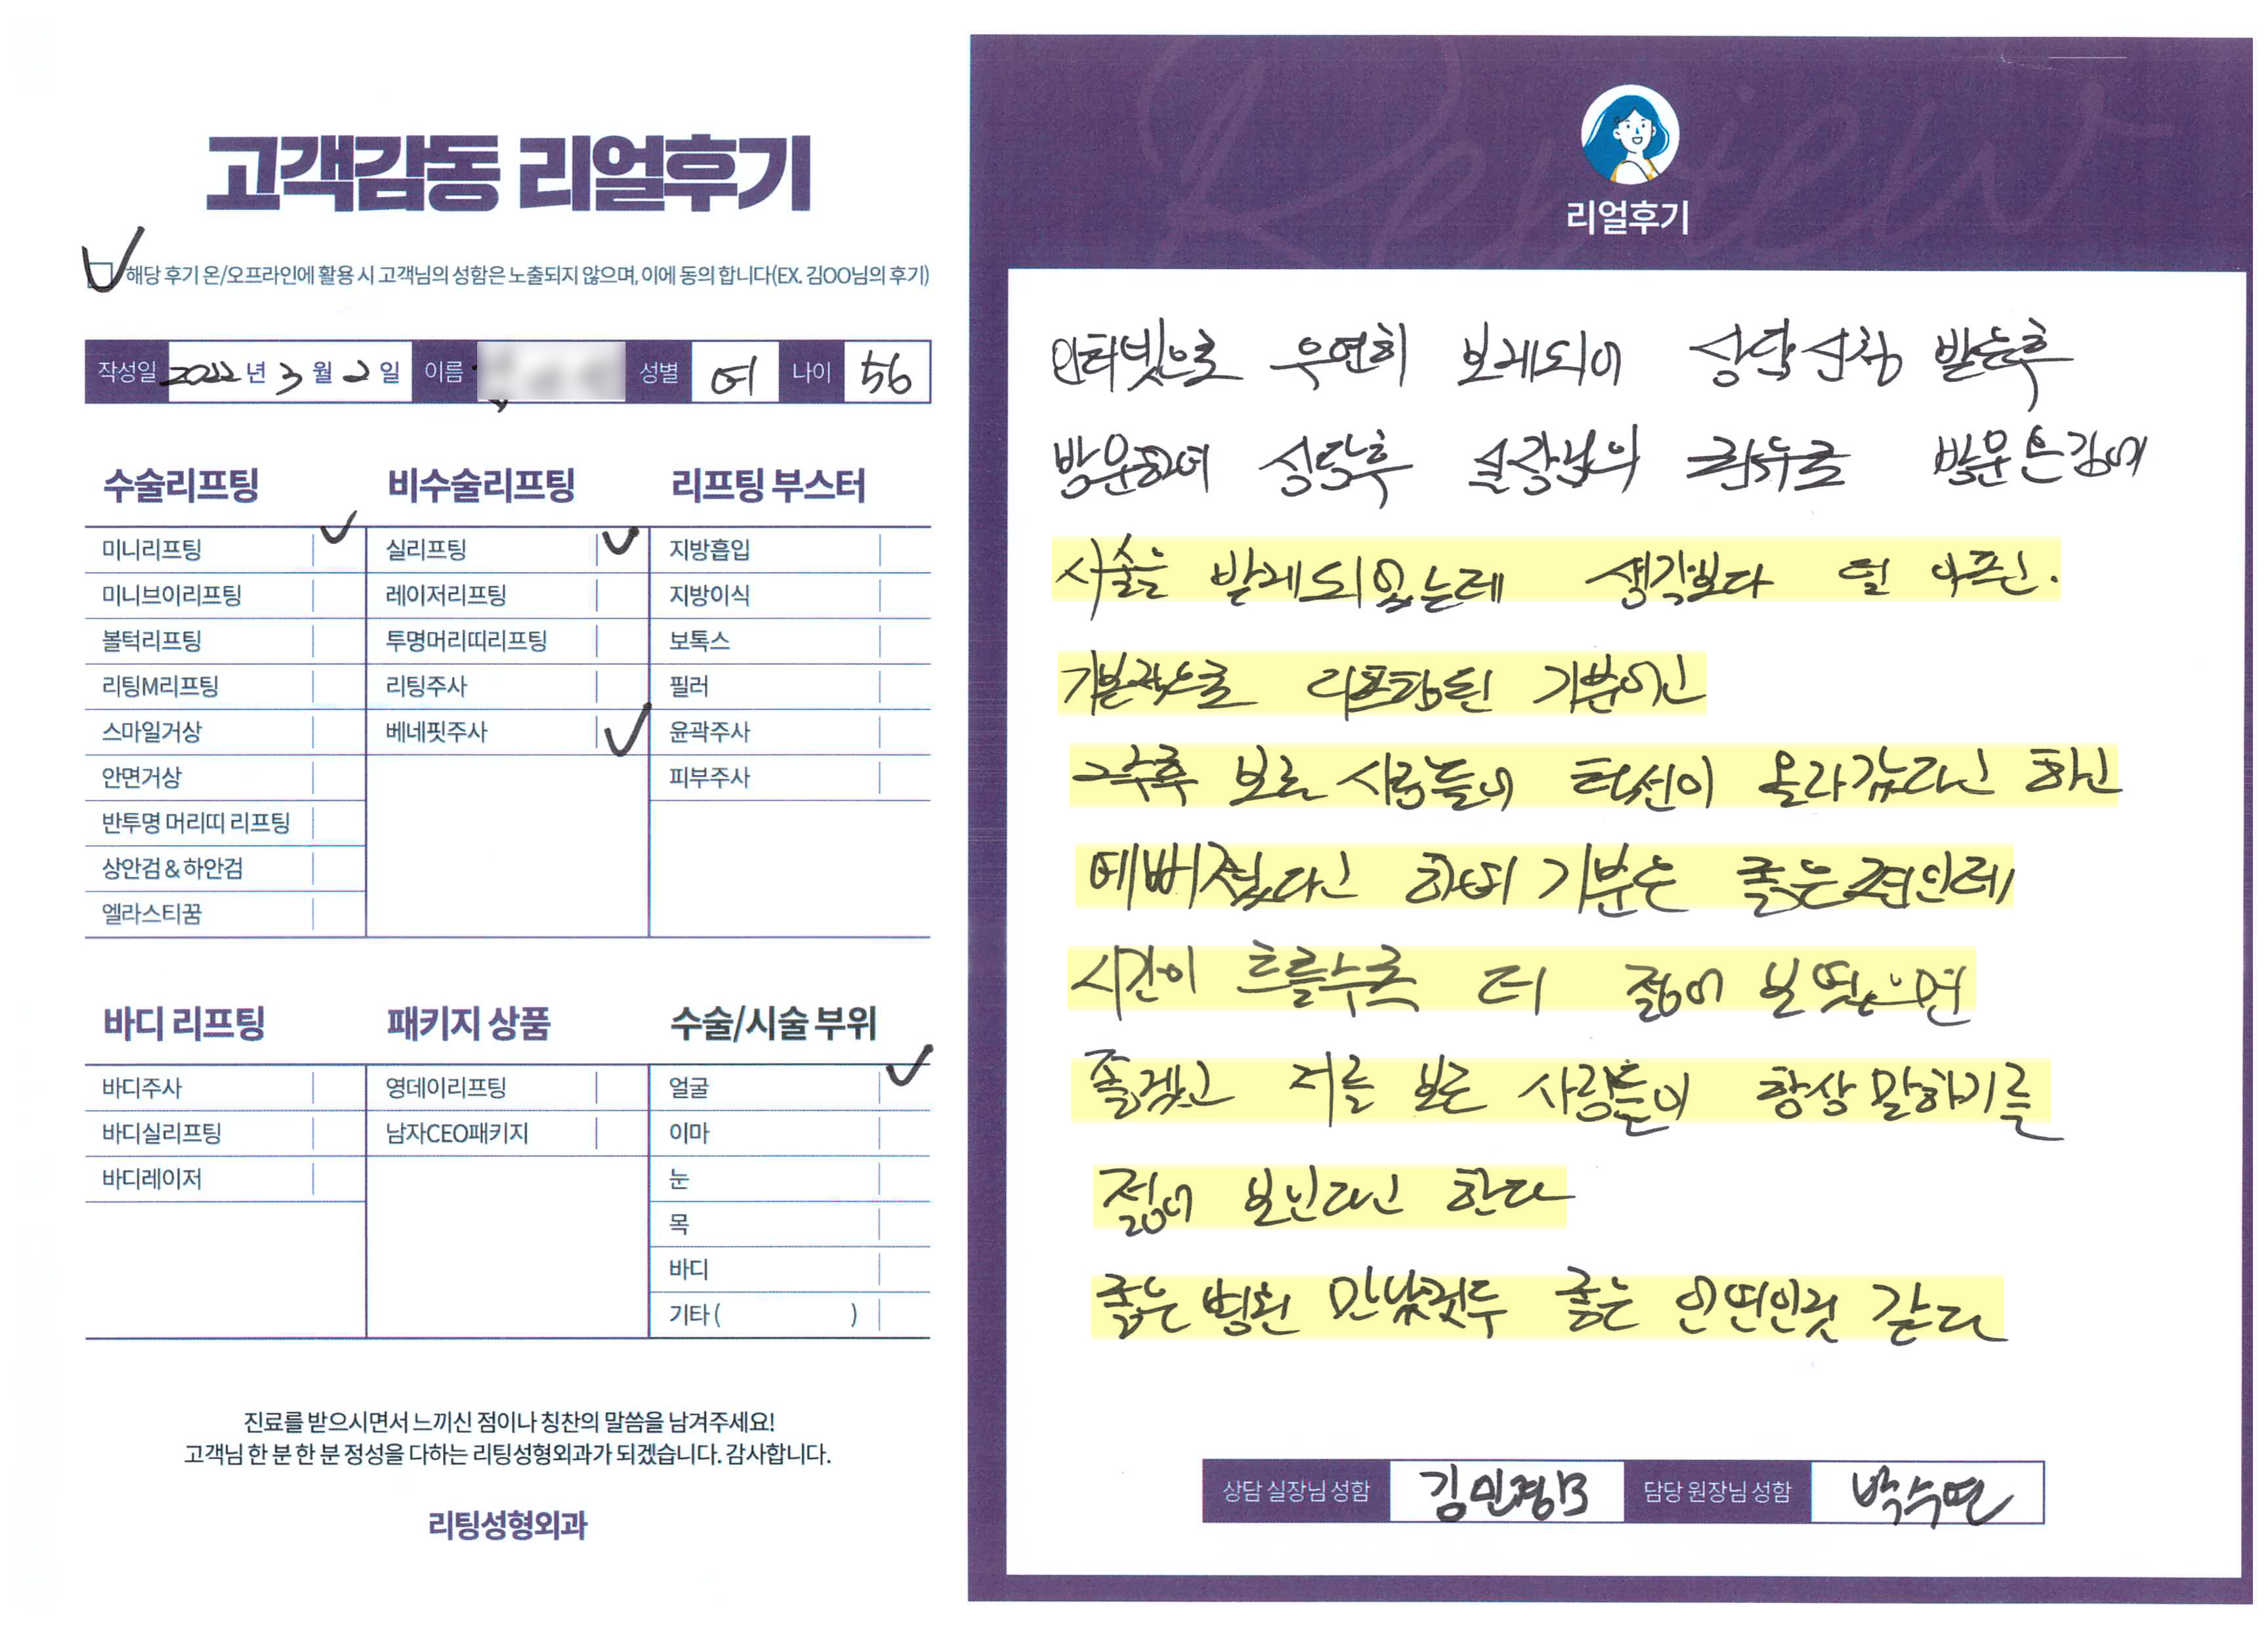 고객감동 리얼후기
해당 후기 온/오프라인에 활용 시 고객님의 성함은 노출되지 않으며, 이에 동의 합니다(EX. 김OO님의 후기)
작성일 2022 년 3 월 2 일 이름 성별 여 나이 56
수술리프팅
미니리프팅
미니브이리프팅
볼턱리프팅
리팅M리프팅
스마일거상
안면거상
반투명 머리띠 리프팅
상안검 & 하안검
엘라스티꿈
비수술리프팅
실리프팅
레이저리프팅
투명머리띠리프팅
리팅주사
베네핏주사
리프팅 부스터
지방흡입
지방이식
보톡스
필러
윤곽주사
피부주사
바디 리프팅
바디주사
바디실리프팅
바디레이저
패키지 상품
영데이리프팅
남자CEO패키지
수술/시술 부위
얼굴
이마
눈
목
바디
기타 ( )
진료를 받으시면서 느끼신 점이나 칭찬의 말씀을 남겨주세요!
고객님 한 분 한 분 정성을 다하는 리팅성형외과가 되겠습니다. 감사합니다.
리팅성형외과
Review
리얼후기
인터넷으로 우연히 보게되어 상담신청 받은후
방문하여 상담후 실장님의 권유로 방문은김에
시술을 받게되었는데 생각보다 덜 아픈고.
기본적으로 리프팅된 기분이고
그후 보는 사람들이 턱선이 올라갔다고 하고
예뻐졌다고 하여 기분은 좋은편인데
시간이 흐를수록 더 젊어 보였으면
좋겠고 저를 보는 사람들이 항상 말하기를
젊어 보인다고 한다
좋은 병원 만났것두 좋은 인연인것 같다
상담 실장님 성함 김민경B 담당 원장님 성함 박수연